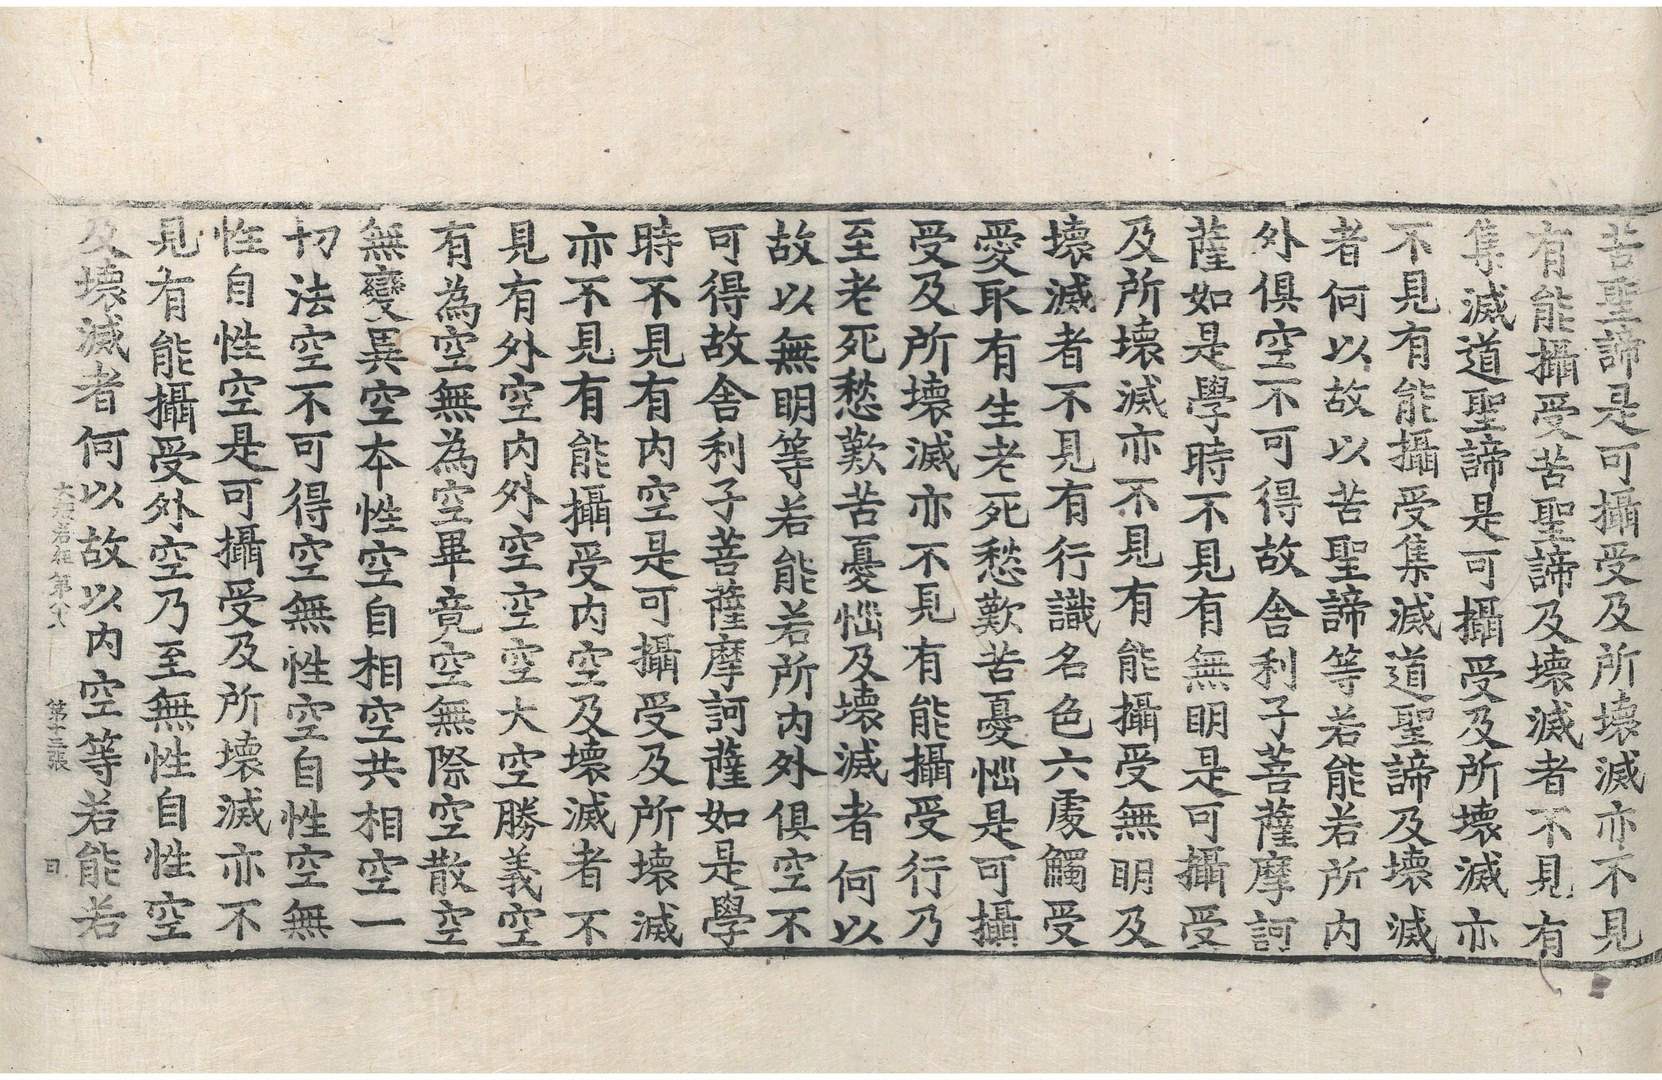 苦聖諦是可攝受及所壞滅亦不見
有能攝受苦聖諦及壞滅者不見有
集滅道聖諦是可攝受及所壞滅亦
不見有能攝受集滅道聖諦及壞滅
者何以故以苦聖諦等若能若所內
外俱空不可得故舍利子菩薩摩訶
薩如是學時不見有無明是可攝受
及所壞滅亦不見有能攝受無明及
壞滅者不見有行識名色六處觸受
愛取有生老死愁歎苦憂惱是可攝
受及所壞滅亦不見有能攝受行乃
至老死愁歎苦憂惱及壞滅者何以
故以無明等若能若所內外俱空不
可得故舍利子菩薩摩訶薩如是學
時不見有內空是可攝受及所壞滅
亦不見有能攝受內空及壞滅者不
見有外空內外空空空大空勝義空
有為空無為空畢竟空無際空散空
無變異空本性空自相空共相空一
切法空不可得空無性空自性空無
性自性空是可攝受及所壞滅亦不
見有能攝受外空乃至無性自性空
及壞滅者何以故以內空等若能若
大般若經第六 第十三張